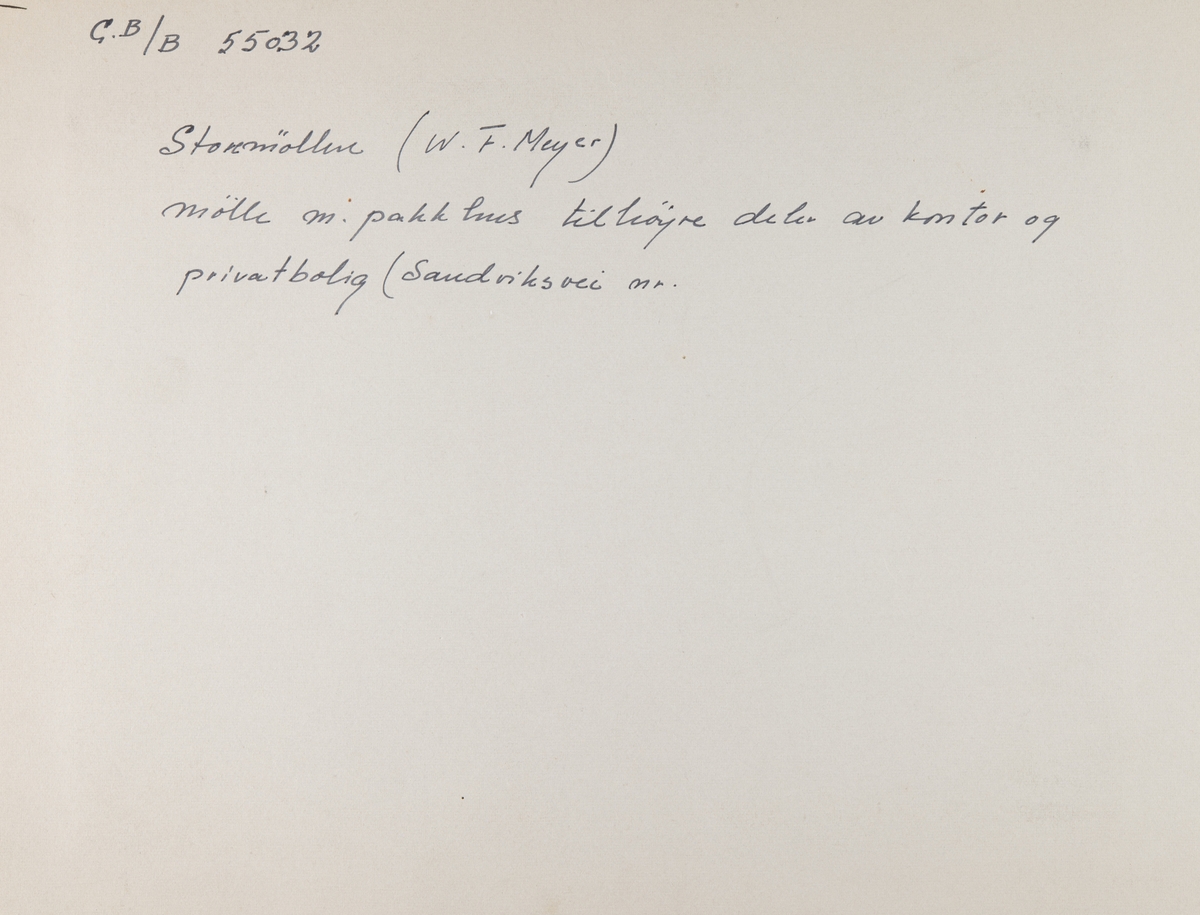 G.B/B 55032
Storemöllen (W. F. Meyer)
mölle m. pakkhus til höyre deler av kontor og
privatbolig (Sandviksvei nr.